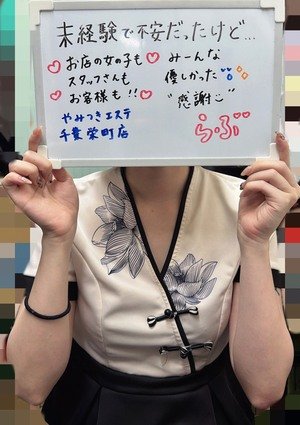 未経験で不安だったけど…
♡お店の女の子も♡みーんな
スタッフさんも 優しかった
♡お客様も!!♡ "感謝"
やみつきエステ
千葉栄町店
らぶ♡